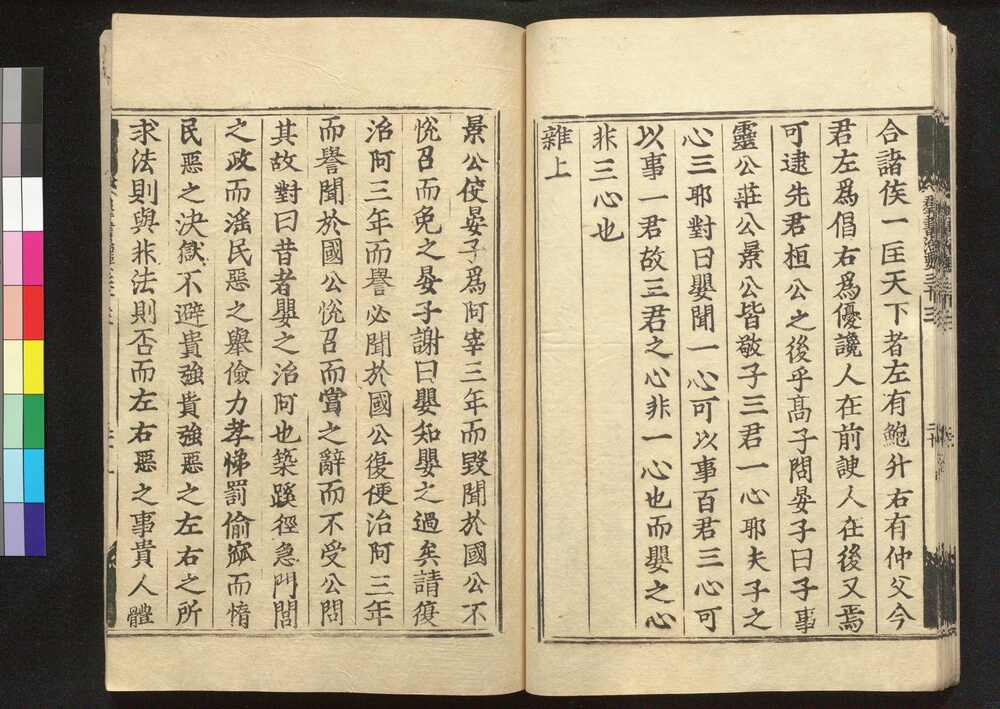 合諸侯一匡天下者左有鮑叔右有仲父今
君左爲倡右爲優讒人在前諛人在後又焉
可逮先君桓公之後乎髙子問晏子曰子事
靈公莊公景公皆敬子三君一心耶夫子之
心三耶對曰嬰聞一心可以事百君三心可
以事一君故三君之心非一心也而嬰之心
非三心也
雜上
景公使晏子爲阿宰三年而毀聞於國公不
悅召而免之晏子謝曰嬰知嬰之過矣請復
治阿三年而譽必聞於國公復使治阿三年
而譽聞於國公悅召而賞之辭而不受公問
其故對曰昔者嬰之治阿也築蹊徑急門閭
之政而淫民惡之舉儉力孝悌罰偷窳而惰
民惡之決獄不避貴強貴強惡之左右之所
求法則與非法則否而左右惡之事貴人體
羣書治要三十三
二十